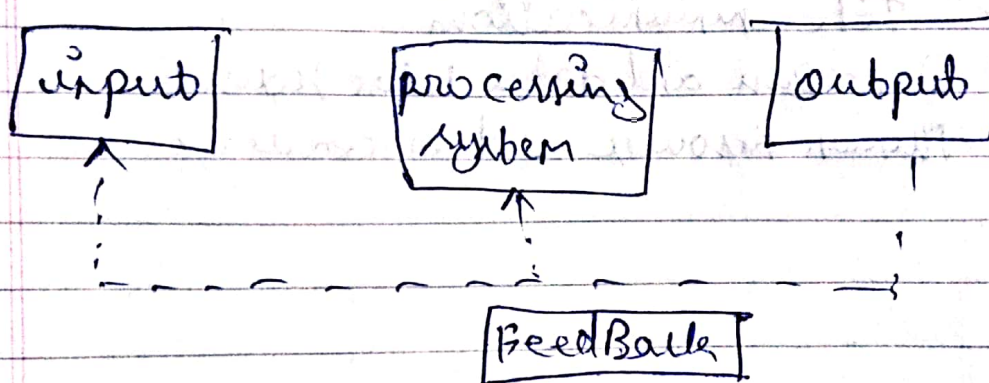 input
processing
system
output
FeedBack